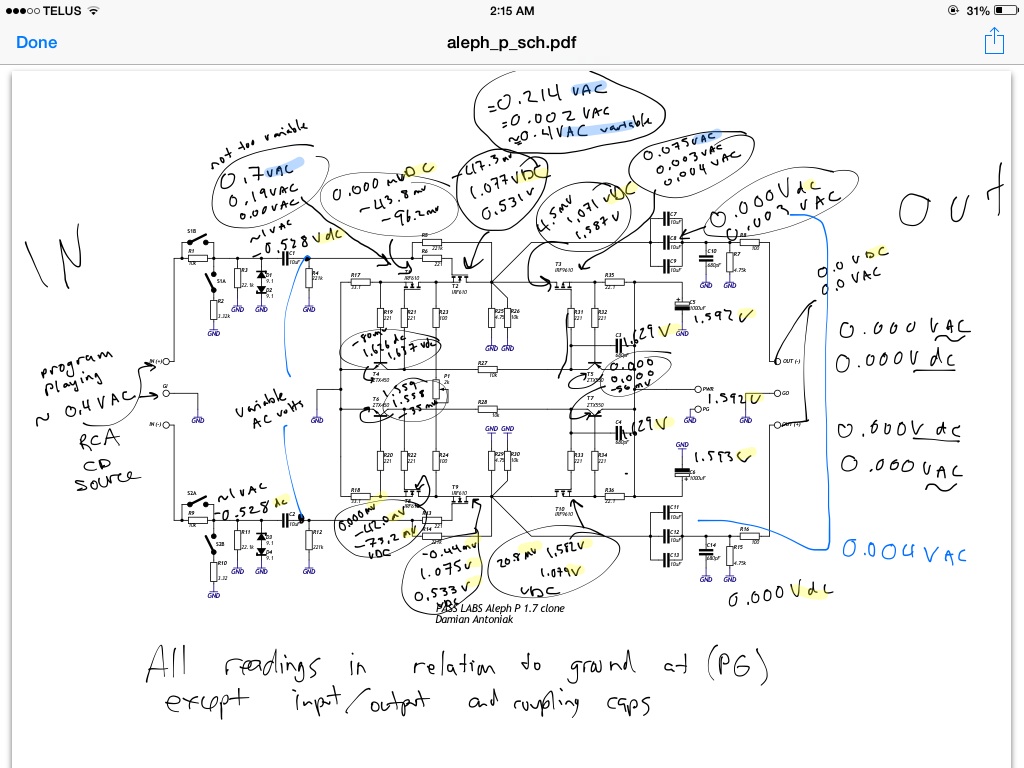 TELUS
2:15 AM
31%
Done
aleph_p_sch.pdf
= 0.214 VAC
= 0.002 VAC
~0.4VAC variable
not too variable
0.7VAC
0.19VAC
0.00VAC
0.000 mv DC
-43.8 mv
-96.2mv
-47.3mv
1.077 VDC
0.531 v
4.5mv
1.071 VDC
1.587 v
0.075VAC
0.003 VAC
0.004 VAC
0.000Vdc
0.003 VAC
IN
OUT
~1VAC
-0.528 Vdc
S1B
R1
10k
S1A
R2
3.32k
GND
R3
22.1k
D1
9.1
D2
9.1
GND
GND
C1
10uF
R4
221k
GND
R5
221k
R6
221
R17
33.1
IRF610
T2
IRF610
T3
IRF9610
R35
22.1
C7
10uF
C8
10uF
C9
10uF
C10
680pF
R7
4.75k
GND
GND
R8
100
0.0 VDC
0.0 VAC
R19
221
R21
221
R23
100
R25
4.75
R26
10k
GND
GND
R31
221
R32
221
C3
680pF
1.629 V
C5
1000uF
GND
1.592 V
0.000 VAC
0.000V dc
program
playing
~ 0.4VAC
RCA
CD
source
IN (+)
GI
GND
IN (-)
variable
AC volts
GND
-80mv
1.626 dc
1.637 vdc
T4
ZTX450
P1
2k
R27
10k
T5
ZTX550
OUT (-)
0.000
0.000
-56mv
T6
ZTX450
1.559
1.558
-35mv
R28
10k
T7
ZTX550
PWR
PG
GND
1.592V
GND
GO
OUT (+)
C4
680pF
1.629 V
0.000V dc
0.000 VAC
GND
GND
R20
221
R22
221
R24
100
R29
4.75
R30
10k
R33
221
R34
221
GND
1.593 V
C6
1000uF
S2A
~1VAC
-0.528 dc
R9
10k
S2B
R10
3.32
GND
R11
22.1k
D3
9.1
D4
9.1
GND
GND
C2
10uF
R12
221k
GND
R18
33.1
T8
T9
IRF610
T10
IRF9610
R36
22.1
R13
221
R14
0.000mv
-42.0mv
-73.2 mv
VDC
-0.44mv
1.075 v
0.533 v
VDC
20.8mv
1.582V
1.079V
VDC
C11
10uF
C12
10uF
C13
10uF
C14
680pF
R15
4.75k
GND
GND
R16
100
0.004 VAC
0.000V dc
PASS LABS Aleph P 1.7 clone
Damian Antoniak
All readings in relation to ground at (PG)
except input/output and coupling caps